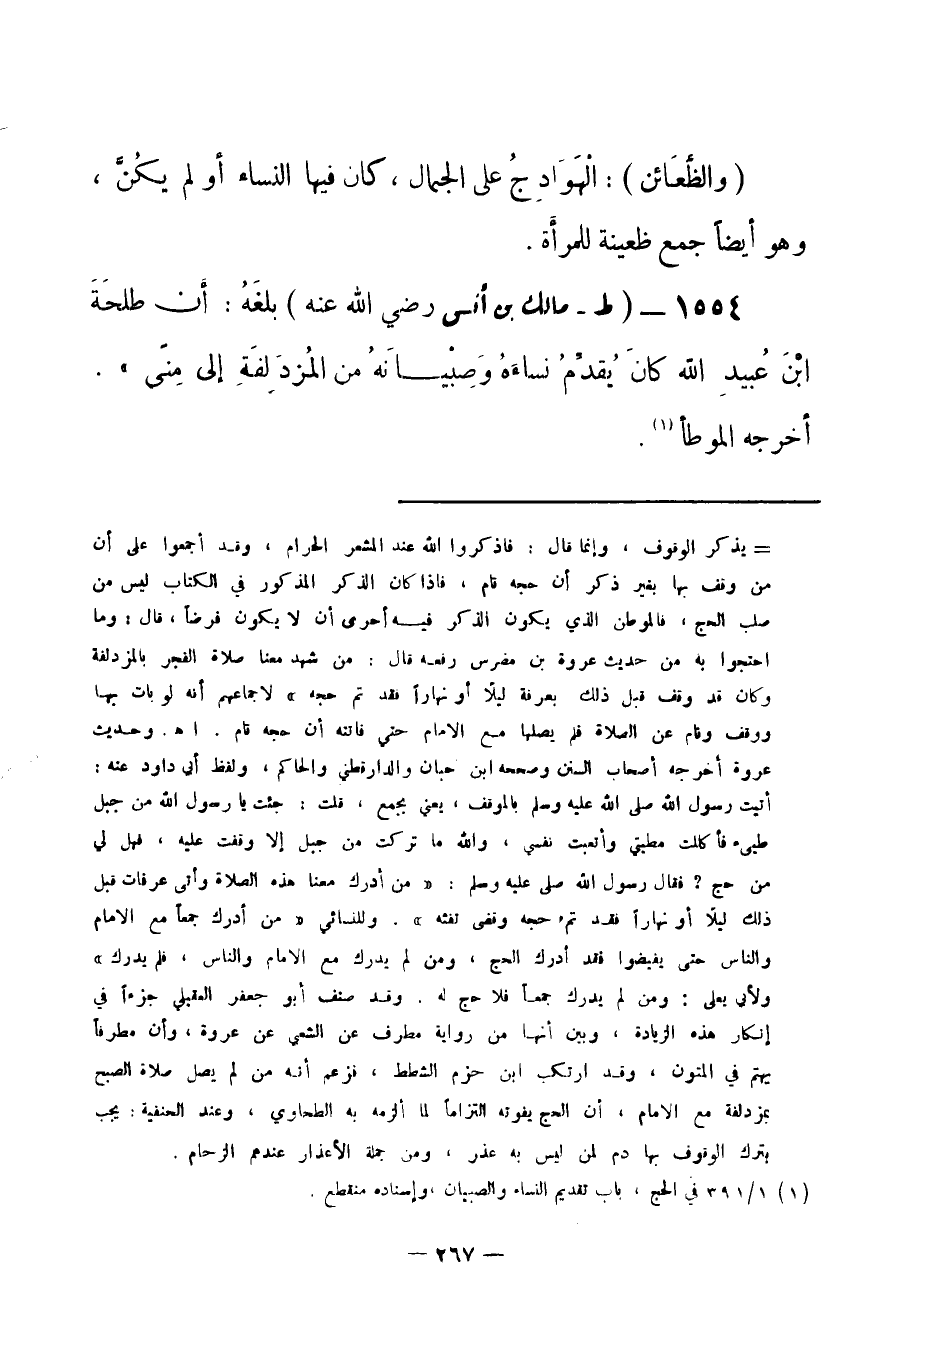 ( والظَّعَائن ) : الْهَوَادِجُ على الجمال ، كان فيها النساء أو لم يكُنَّ ،
وهو أيضاً جمع ظعينة للمرأَة .
١٥٥٤ — ( ط - مالك بن أنس رضي الله عنه ) بلغَهُ : أَن طلحَةَ
ابْنَ عُبيدِ الله كانَ يُقدِّمُ نساءَهُ وَصِبْيَانَهُ من المُزدَلِفَةِ إلى مِنًى » .
أخرجه الموطأ (١) .
= يذكر الوقوف ، وإنما قال : فاذكروا الله عند المشعر الحرام ، وقد أجمعوا على أن
من وقف بها بغير ذكر أن حجه تام ، فاذا كان الذكر المذكور في الكتاب ليس من
صلب الحج ، فالموطن الذي يكون الذكر فيه أحرى أن لا يكون فرضاً ، قال : وما
احتجوا به من حديث عروة بن مضرس رفعه قال : من شهد معنا صلاة الفجر بالمزدلفة
وكان قد وقف قبل ذلك بعرفة ليلًا أو نهاراً فقد تم حجه » لاجماعهم أنه لو بات بها
ووقف ونام عن الصلاة فلم يصلها مع الامام حتى فاتته أن حجه تام . ا ه . وحديث
عروة أخرجه أصحاب السنن وصححه ابن حبان والدارقطني والحاكم ، ولفظ أبي داود عنه :
أتيت رسول الله صلى الله عليه وسلم بالموقف ، يعني بجمع ، قلت : جئت يا رسول الله من جبل
طيىء فأكللت مطيتي وأتعبت نفسي ، والله ما تركت من جبل إلا وقفت عليه ، فهل لي
من حج ? فقال رسول الله صلى عليه وسلم : « من أدرك معنا هذه الصلاة وأتى عرفات قبل
ذلك ليلًا أو نهاراً فقد تم حجه وقضى تفثه » . وللنسائي « من أدرك جمعاً مع الامام
والناس حتى يفيضوا فقد أدرك الحج ، ومن لم يدرك مع الامام والناس ، فلم يدرك »
ولأبي يعلى : ومن لم يدرك جمعاً فلا حج له . وقد صنف أبو جعفر العقيلي جزءاً في
إنكار هذه الزيادة ، وبين أنها من رواية مطرف عن الشعبي عن عروة ، وأن مطرفاً
يهتم في المتون ، وقد ارتكب ابن حزم الشطط ، فزعم أنه من لم يصل صلاة الصبح
بمزدلفة مع الامام ، أن الحج يفوته التزاماً لما ألزمه به الطحاوي ، وعند الحنفية : يجب
بترك الوقوف بها دم لمن ليس به عذر ، ومن جملة الأعذار عندهم الزحام .
(١) ٣٩١/١ في الحج ، باب تقديم النساء والصبيان ، وإسناده منقطع .
— ٢٦٧ —